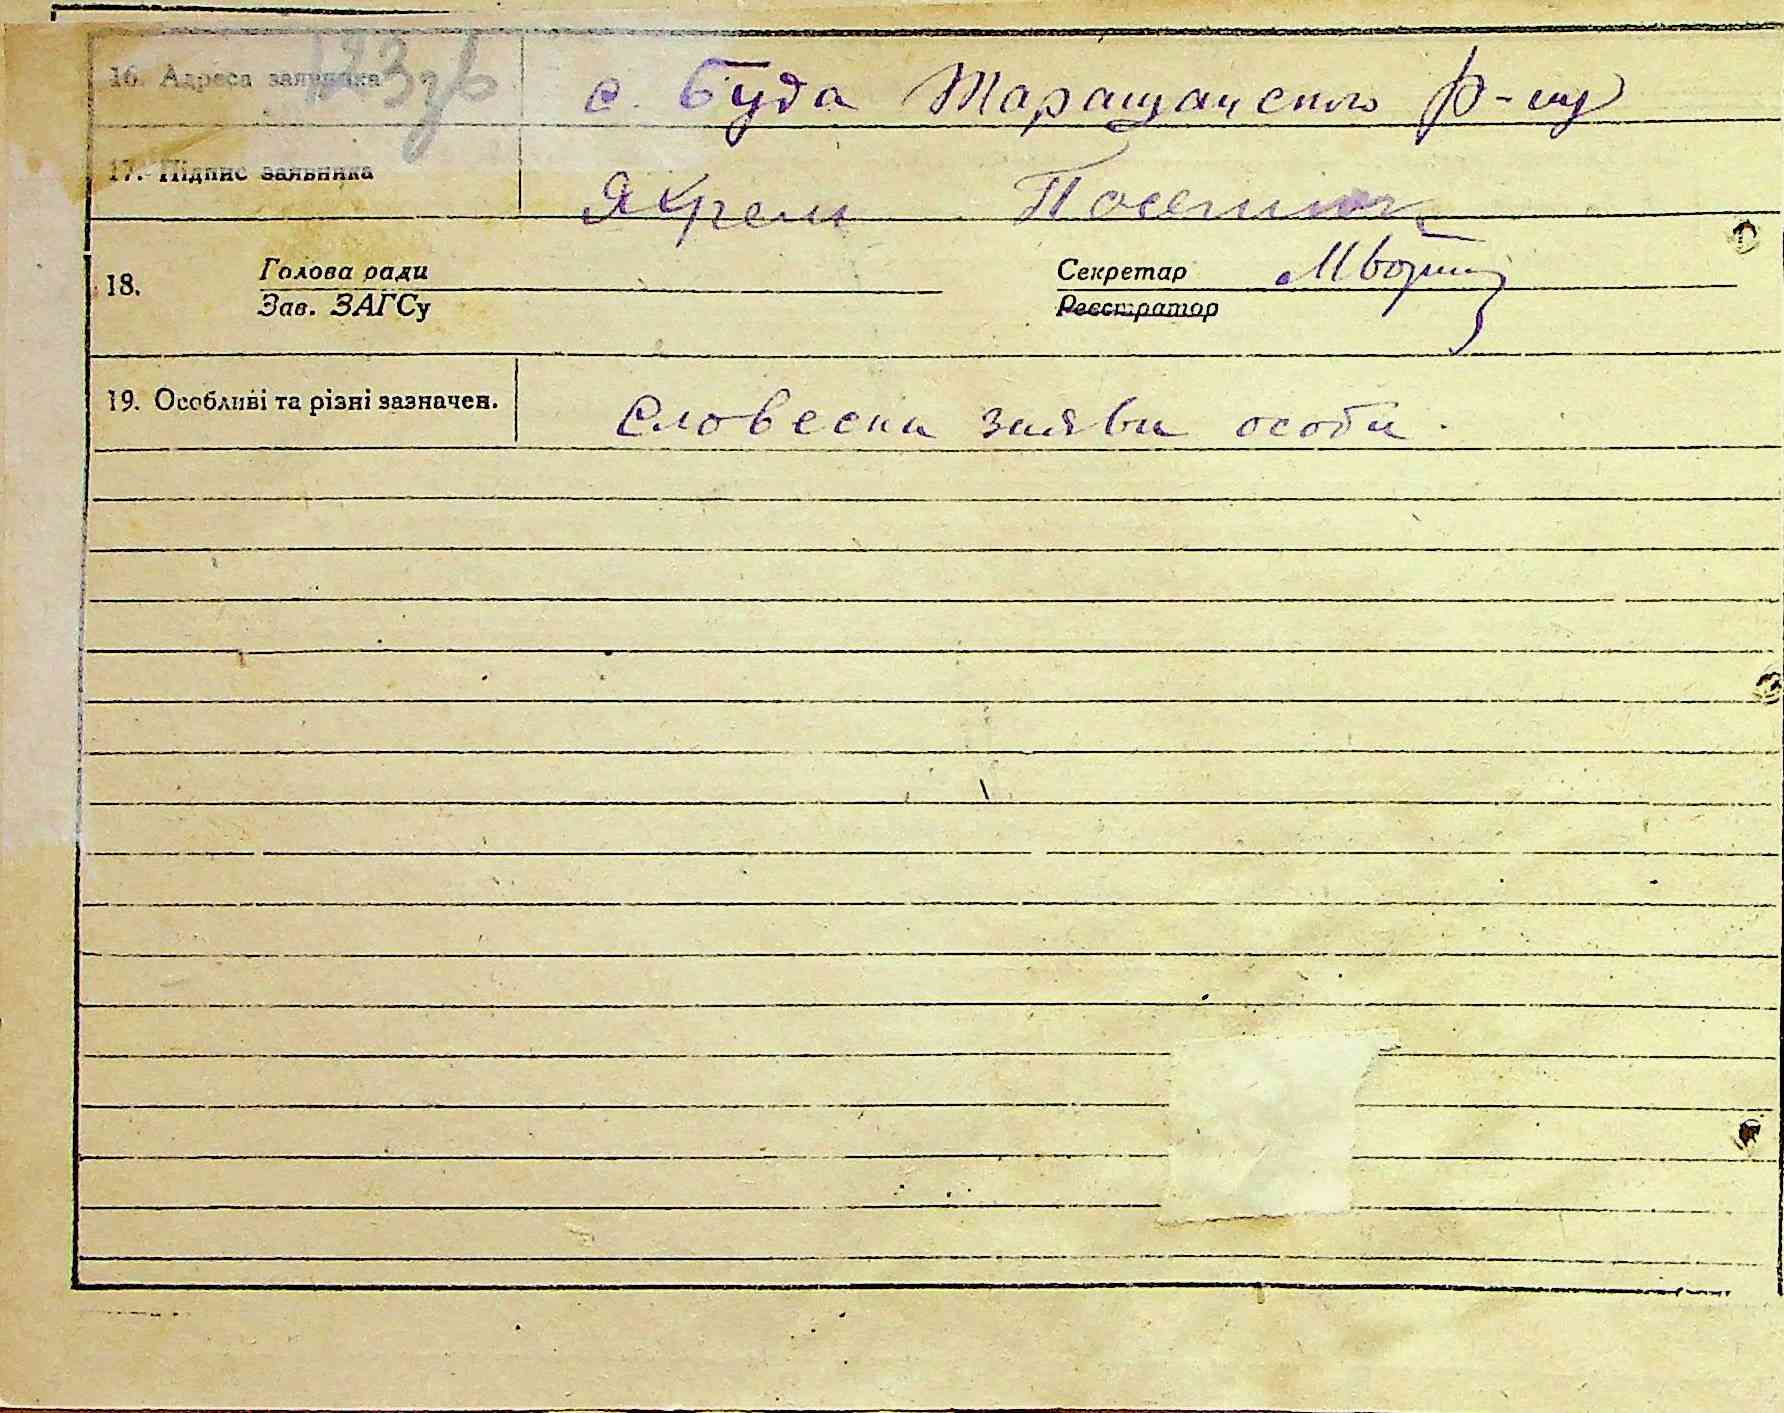 123 зв
16. Адреса заявника с. Буда Таращанського р-ну
17. Підпис заявника
18. Голова ради Секретар
Зав. ЗАГСу Реєстратор
19. Особливі та різні зазначен. Словесна заява особи.